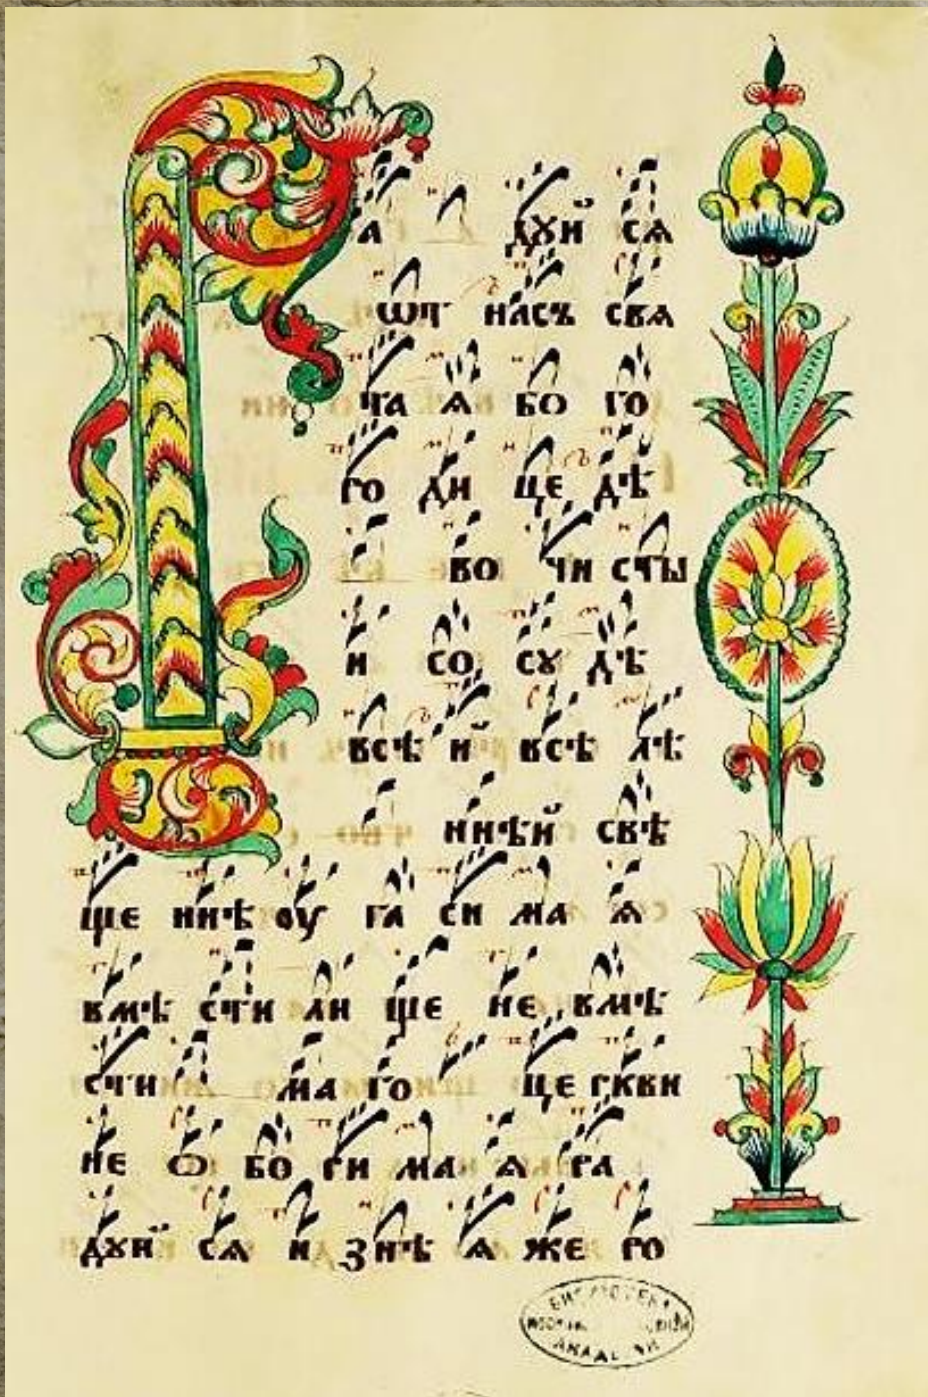 Ра дꙋй сѧ
ѡт насъ свѧ
та ѧ бо го
ро ди це дѣ
во чи сты
и со сꙋ дѣ
всѣ й всѣ лѣ
ннѣй свѣ
ще нѣ ѹ га си ма ѧ
вмѣ сти ли ще не вмѣ
сти ма го це ркви
не ѡ бо ри ма ѧ ра
дꙋй сѧ и знѣ ѧ же ро
БИБЛІОТЕКА